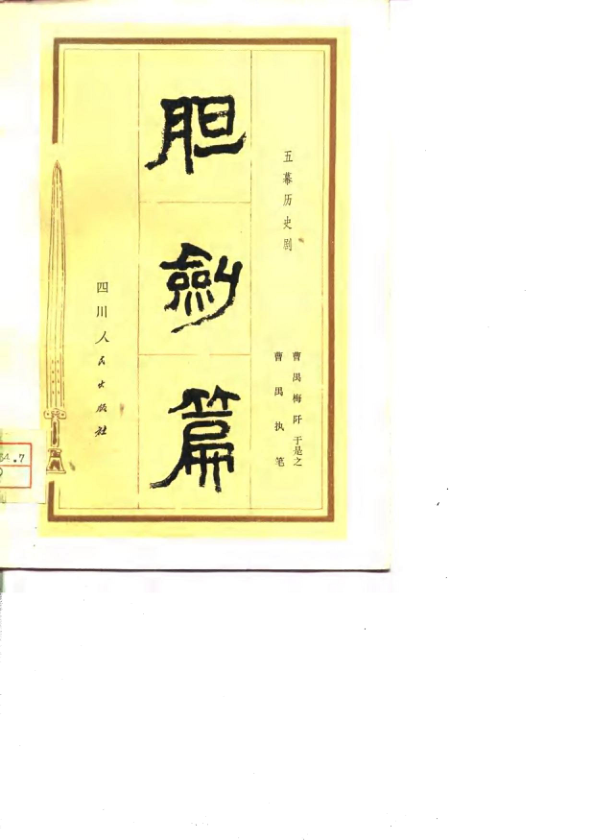 五幕历史剧
曹禺 梅阡 于是之
曹禺 执笔
胆剑篇
四川人民出版社
54.7